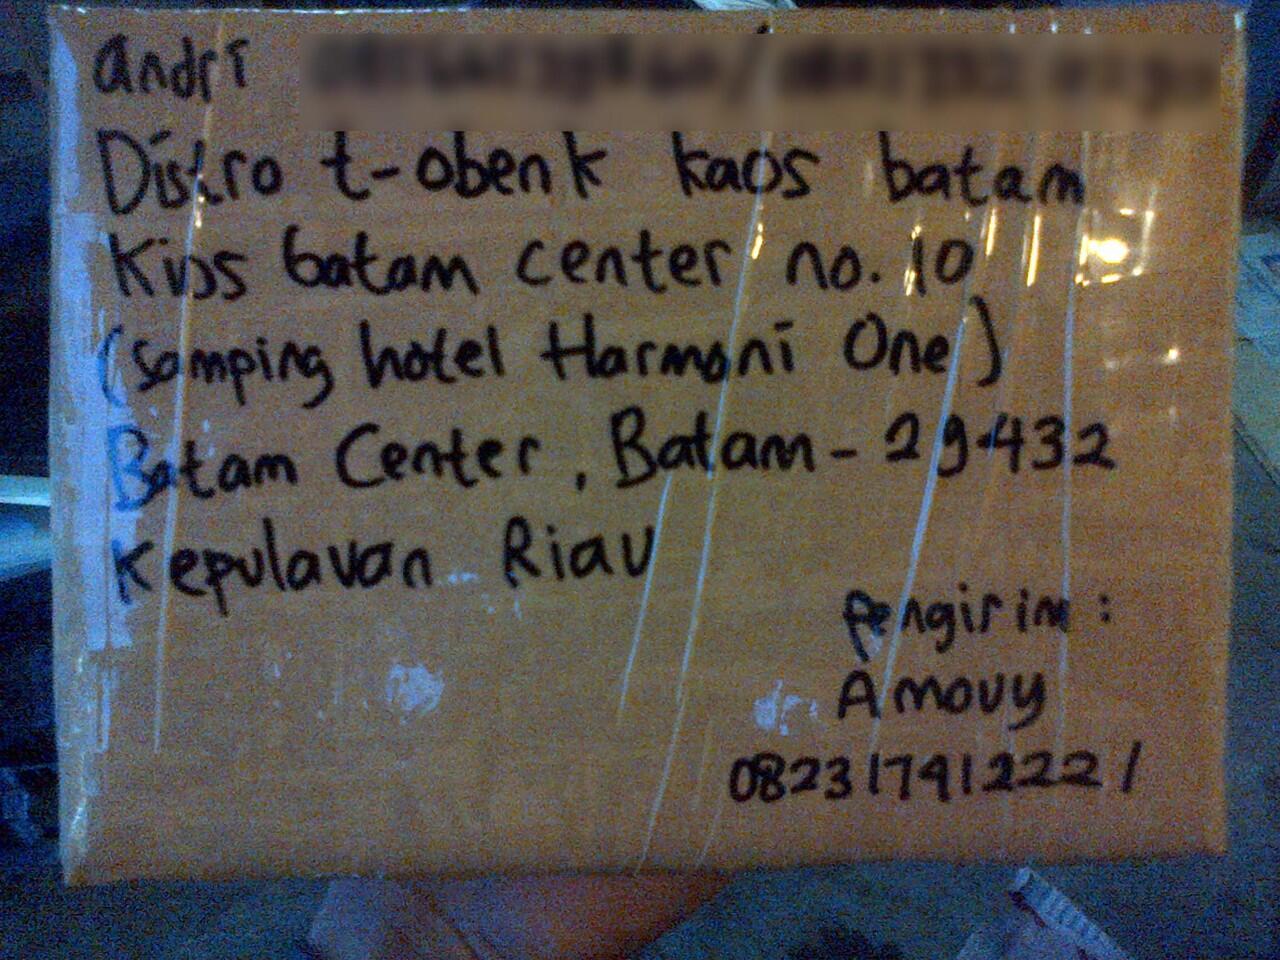 andri
Distro t-obenk kaos batam
Kios batam center no. 10
(samping hotel Harmoni One)
Batam Center, Batam - 29432
Kepulauan Riau
Pengirim :
Amouy
082317912221